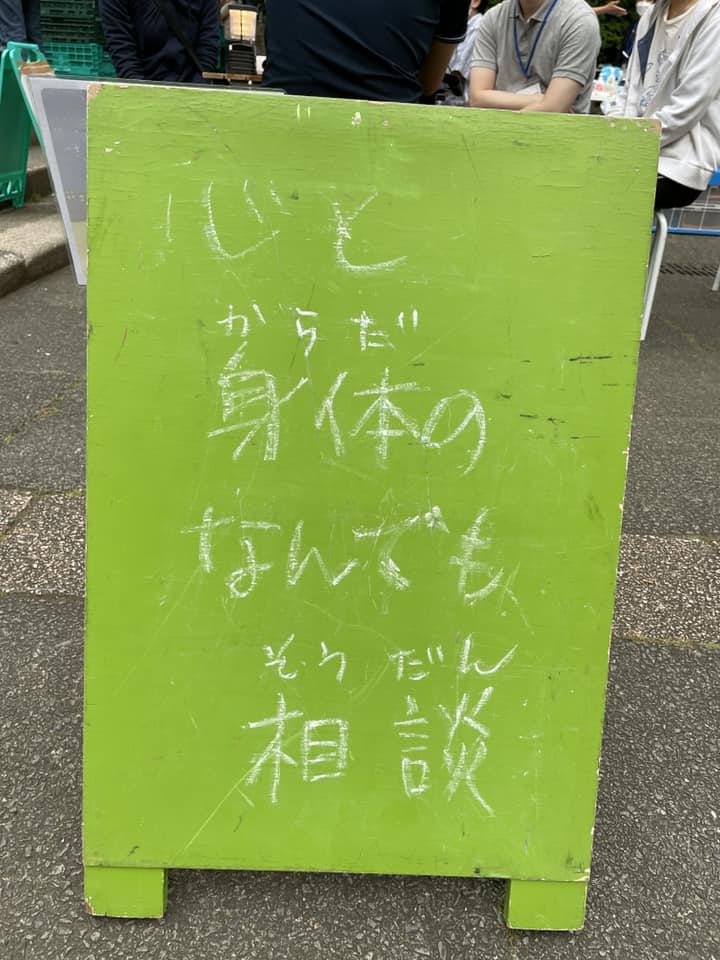 心と
からだ
身体の
なんでも
そうだん
相談